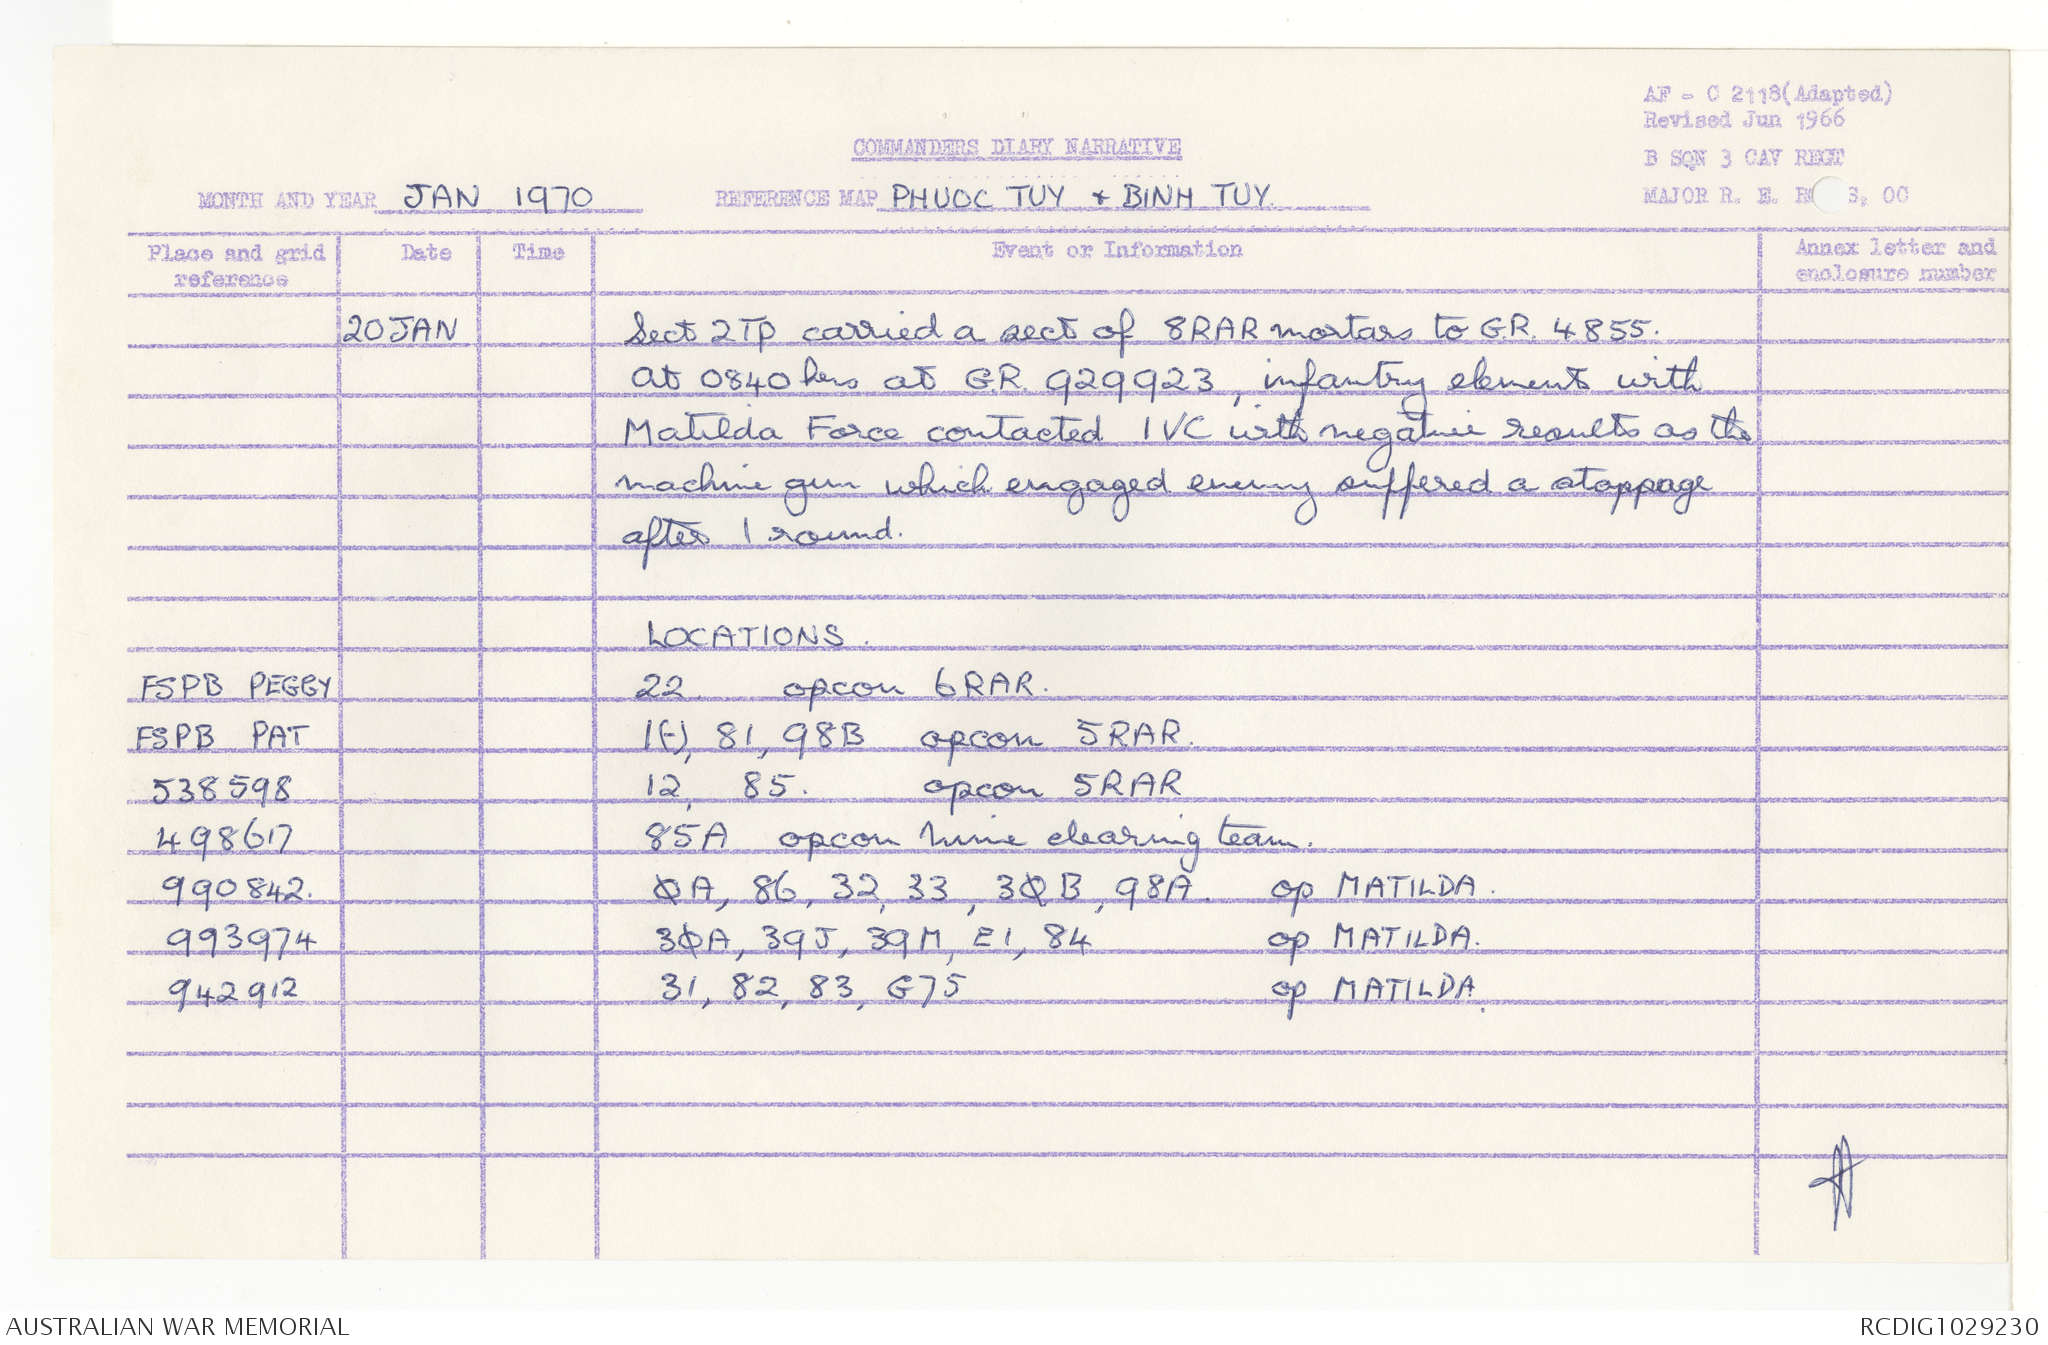 AF - C 2118(Adapted)
Revised Jun 1966
COMMANDERS DIARY NARRATIVE
B SQN 3 CAV REGT
MONTH AND YEAR JAN 1970 REFERENCE MAP PHUOC TUY & BINH TUY.
MAJOR R. E. S, OC
Place and grid reference Date Time Event or Information Annex letter and enclosure number
20 JAN Sect 2 Tp carried a sect of 8RAR mortars to G.R. 4855.
At 0840 hrs at G.R. 929923, infantry element with
Matilda Force contacted 1 VC with negative results as the
machine gun which engaged enemy suffered a stoppage
after 1 round.
LOCATIONS.
FSPB PEGGY 22. opcon 6RAR.
FSPB PAT 1(-), 81, 98B opcon 5RAR.
538598 12, 85. opcon 5RAR
498617 85A opcon mine clearing team.
990842. ØA, 86, 32, 33, 3ØB, 98A. op MATILDA.
993974 3ØA, 39J, 39M, E1, 84 op MATILDA.
942912 31, 82, 83, G75 op MATILDA.
AUSTRALIAN WAR MEMORIAL
RCDIG1029230